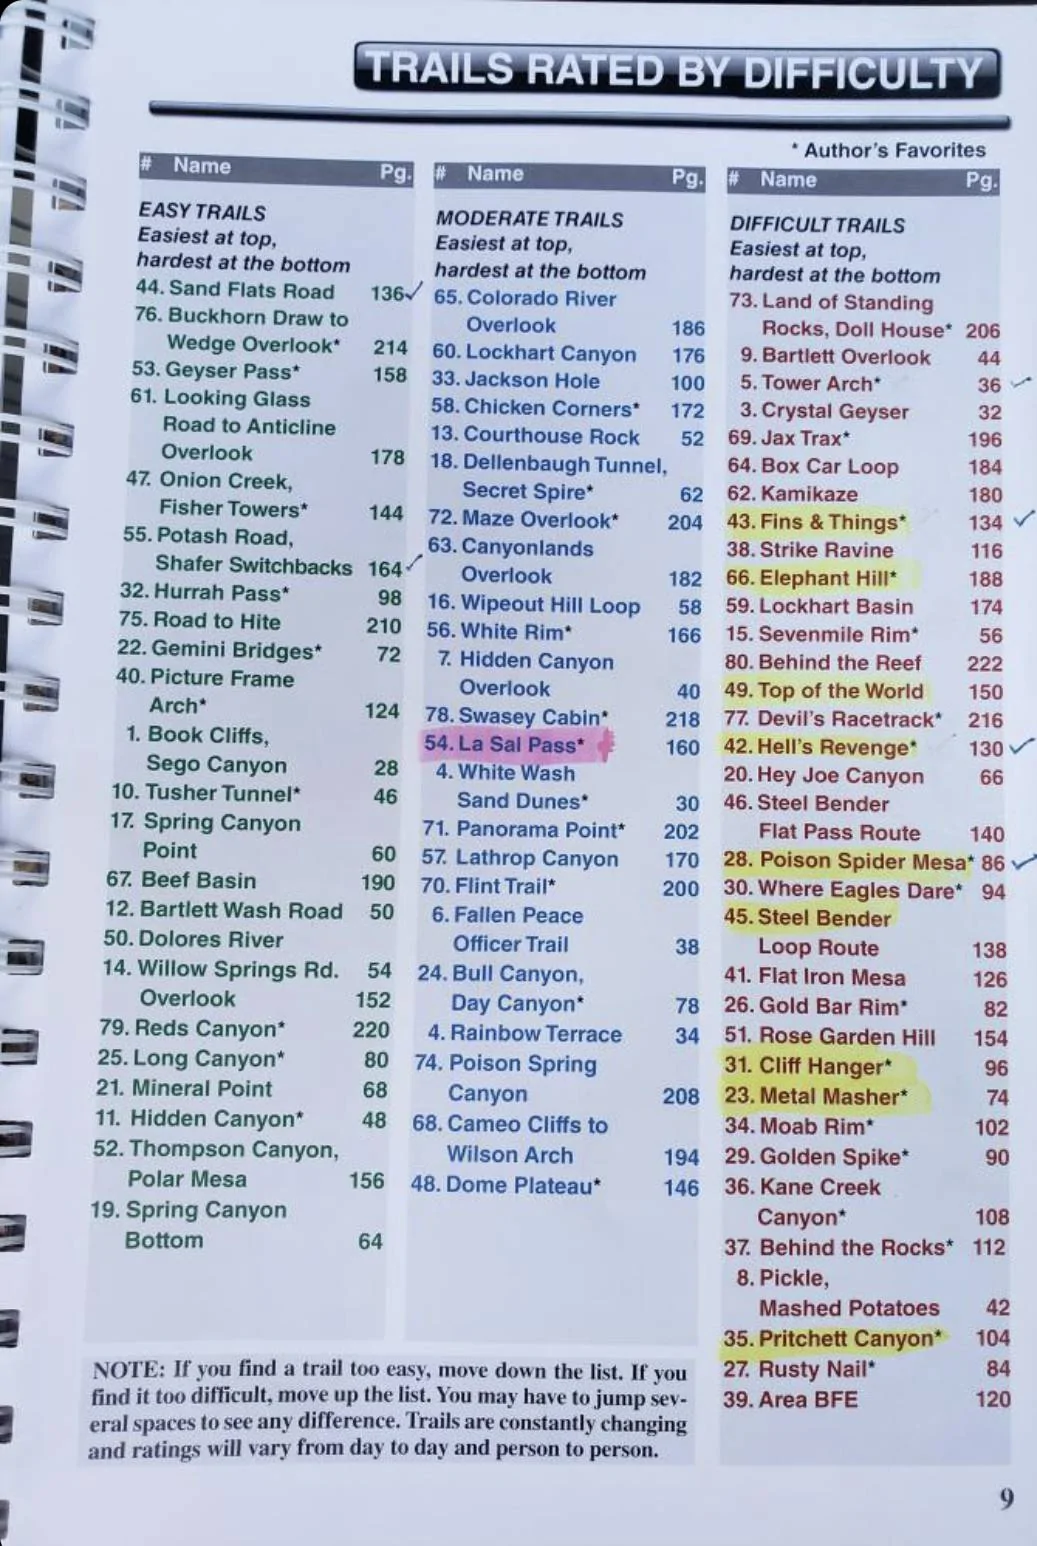 TRAILS RATED BY DIFFICULTY
* Author's Favorites
# Name Pg.
EASY TRAILS
Easiest at top,
hardest at the bottom
44. Sand Flats Road 136
76. Buckhorn Draw to
Wedge Overlook* 214
53. Geyser Pass* 158
61. Looking Glass
Road to Anticline
Overlook 178
47. Onion Creek,
Fisher Towers* 144
55. Potash Road,
Shafer Switchbacks 164
32. Hurrah Pass* 98
75. Road to Hite 210
22. Gemini Bridges* 72
40. Picture Frame
Arch* 124
1. Book Cliffs,
Sego Canyon 28
10. Tusher Tunnel* 46
17. Spring Canyon
Point 60
67. Beef Basin 190
12. Bartlett Wash Road 50
50. Dolores River
14. Willow Springs Rd. 54
Overlook 152
79. Reds Canyon* 220
25. Long Canyon* 80
21. Mineral Point 68
11. Hidden Canyon* 48
52. Thompson Canyon,
Polar Mesa 156
19. Spring Canyon
Bottom 64
# Name Pg.
MODERATE TRAILS
Easiest at top,
hardest at the bottom
65. Colorado River
Overlook 186
60. Lockhart Canyon 176
33. Jackson Hole 100
58. Chicken Corners* 172
13. Courthouse Rock 52
18. Dellenbaugh Tunnel,
Secret Spire* 62
72. Maze Overlook* 204
63. Canyonlands
Overlook 182
16. Wipeout Hill Loop 58
56. White Rim* 166
7. Hidden Canyon
Overlook 40
78. Swasey Cabin* 218
54. La Sal Pass* 160
4. White Wash
Sand Dunes* 30
71. Panorama Point* 202
57. Lathrop Canyon 170
70. Flint Trail* 200
6. Fallen Peace
Officer Trail 38
24. Bull Canyon,
Day Canyon* 78
4. Rainbow Terrace 34
74. Poison Spring
Canyon 208
68. Cameo Cliffs to
Wilson Arch 194
48. Dome Plateau* 146
# Name Pg.
DIFFICULT TRAILS
Easiest at top,
hardest at the bottom
73. Land of Standing
Rocks, Doll House* 206
9. Bartlett Overlook 44
5. Tower Arch* 36
3. Crystal Geyser 32
69. Jax Trax* 196
64. Box Car Loop 184
62. Kamikaze 180
43. Fins & Things* 134
38. Strike Ravine 116
66. Elephant Hill* 188
59. Lockhart Basin 174
15. Sevenmile Rim* 56
80. Behind the Reef 222
49. Top of the World 150
77. Devil's Racetrack* 216
42. Hell's Revenge* 130
20. Hey Joe Canyon 66
46. Steel Bender
Flat Pass Route 140
28. Poison Spider Mesa* 86
30. Where Eagles Dare* 94
45. Steel Bender
Loop Route 138
41. Flat Iron Mesa 126
26. Gold Bar Rim* 82
51. Rose Garden Hill 154
31. Cliff Hanger* 96
23. Metal Masher* 74
34. Moab Rim* 102
29. Golden Spike* 90
36. Kane Creek
Canyon* 108
37. Behind the Rocks* 112
8. Pickle,
Mashed Potatoes 42
35. Pritchett Canyon* 104
27. Rusty Nail* 84
39. Area BFE 120
NOTE: If you find a trail too easy, move down the list. If you
find it too difficult, move up the list. You may have to jump sev-
eral spaces to see any difference. Trails are constantly changing
and ratings will vary from day to day and person to person.
9